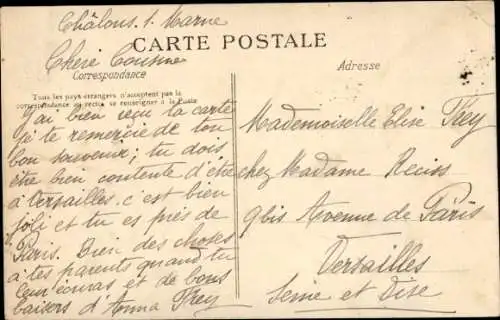 Châlons s. Marne
Chère Cousine
CARTE POSTALE
Correspondance
Tous les pays étrangers n'acceptent pas la
correspondance au recto, se renseigner à la Poste
J'ai bien reçu ta carte
je te remercie de ton
bon souvenir; tu dois
être bien contente d'être
à Versailles c'est bien
joli et tu es près de
Paris. Bien des choses
à tes parents quand tu
leur écriras et de bons
baisers d'Anna Frey
Adresse
Mademoiselle Elise Frey
chez Madame Reciss
9bis Avenue de Paris
Versailles
Seine et Oise